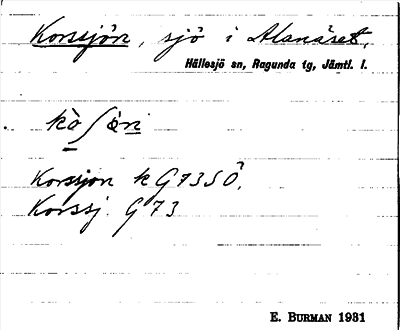 Korssjön, sjö i Alanäset,
Hällesjö sn, Ragunda tg, Jämtl. l.
Korssjon k G73SÖ,
Korssj. G73
E. BURMAN 1931